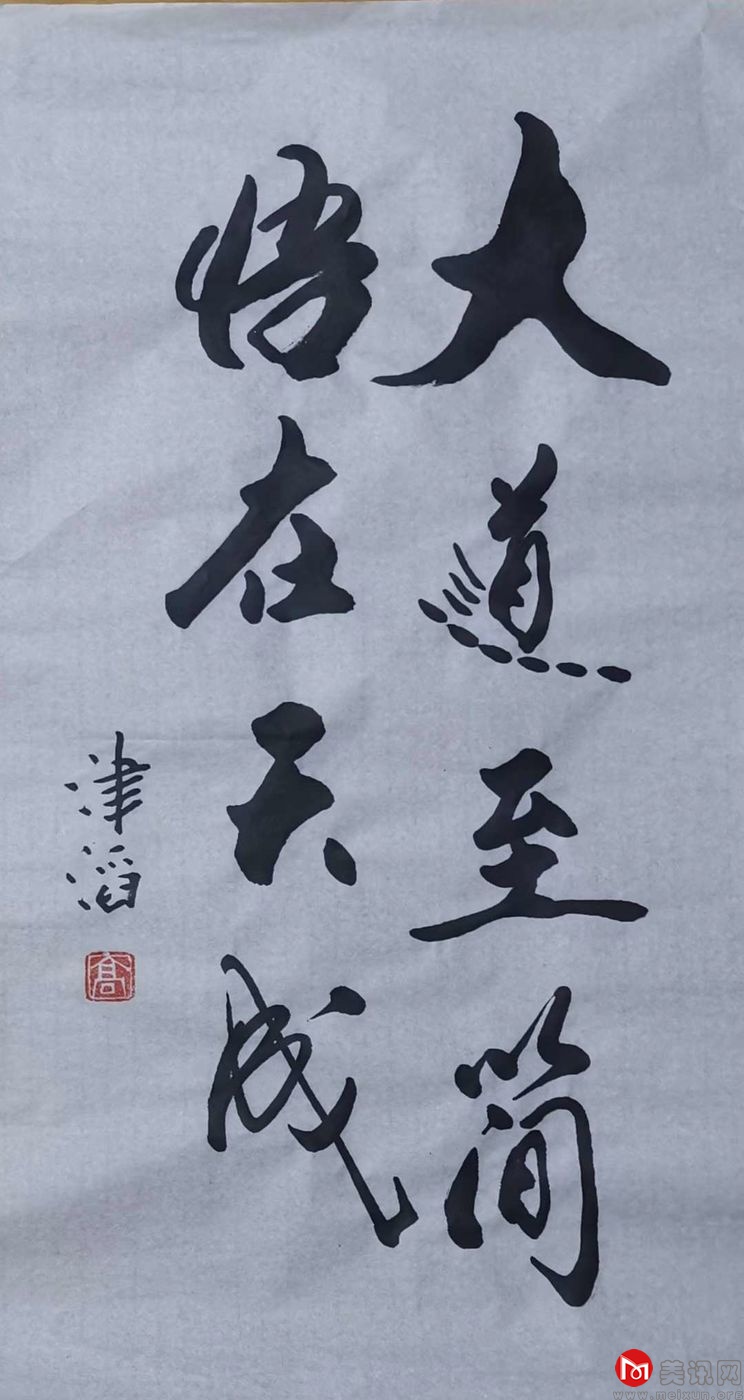 大道至简
悟在天成
津滔
高
美讯网
www.meixun.org